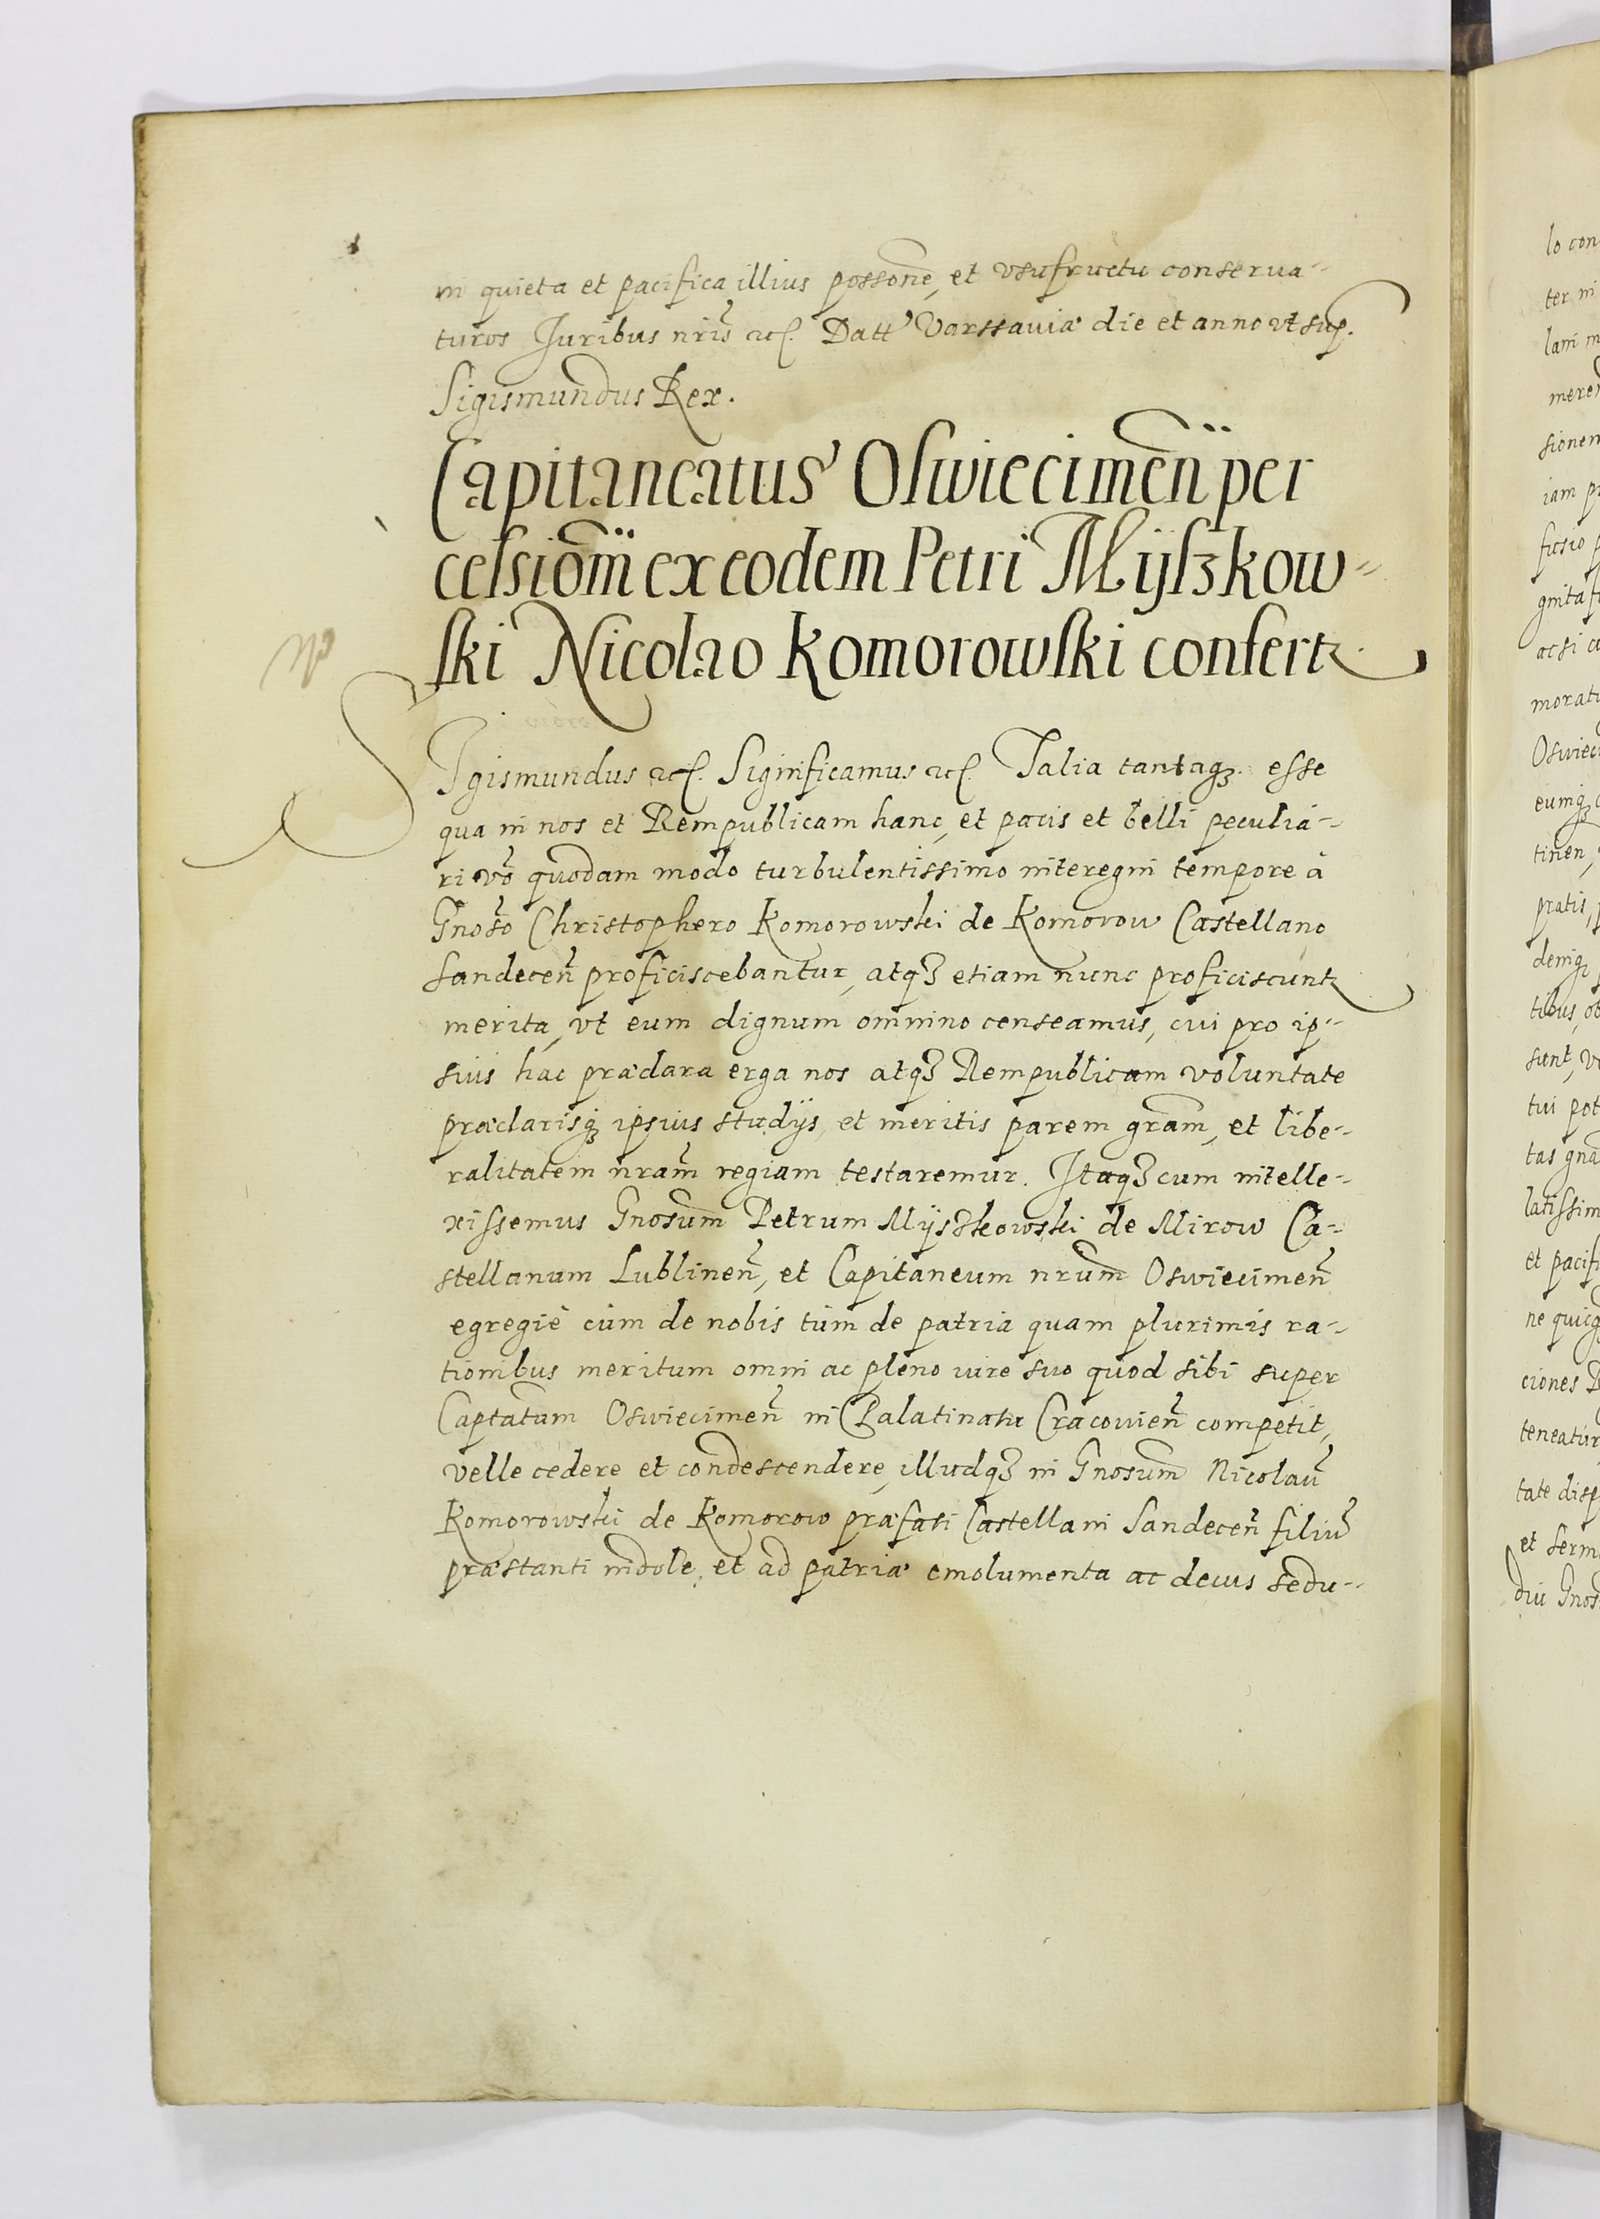 in quieta et pacifica illius possone, et vsufructu conserua-
turos Juribus nris etc. Datt Varssauiæ die et anno vt sup.
Sigismundus Rex.
Capitaneatus Oswiecimen per
cessionem ex eodem Petri Myszkow-
ski Nicolao Komorowski confert
Sigismundus etc. Significamus etc. Talia tantaq3 esse
qua in nos et Rempublicam hanc, et pacis et belli peculia-
ri vo quodam modo turbulentissimo interegni tempore à
Gnoso Christophero Komorowski de Komorow Castellano
Sandecen proficiscebantur, atq3 etiam nunc proficiscunt
merita, vt eum dignum omnino censeamus, cui pro ip-
sius hac præclara erga nos atq3 Rempublicam voluntate
præclarisq3 ipsius studijs, et meritis parem gram, et libe-
ralitatem nram regiam testaremur. Itaq3 cum intelle-
xissemus Gnosum Petrum Mijszkowski de Mirow Ca-
stellanum Lublinen, et Capitaneum nrum Oswiecimen
egregiè cùm de nobis tùm de patria quam plurimis ra-
tionibus meritum omni ac pleno iure suo quod sibi super
Captatum Oswiecimen in Palatinatu Cracouien competit,
velle cedere et condescendere, illudq3 in Gnosum Nicolau
Komorowski de Komorow præfati Castellani Sandecen filiu
præstanti indole, et ad patriæ emolumenta ac decus sedu-